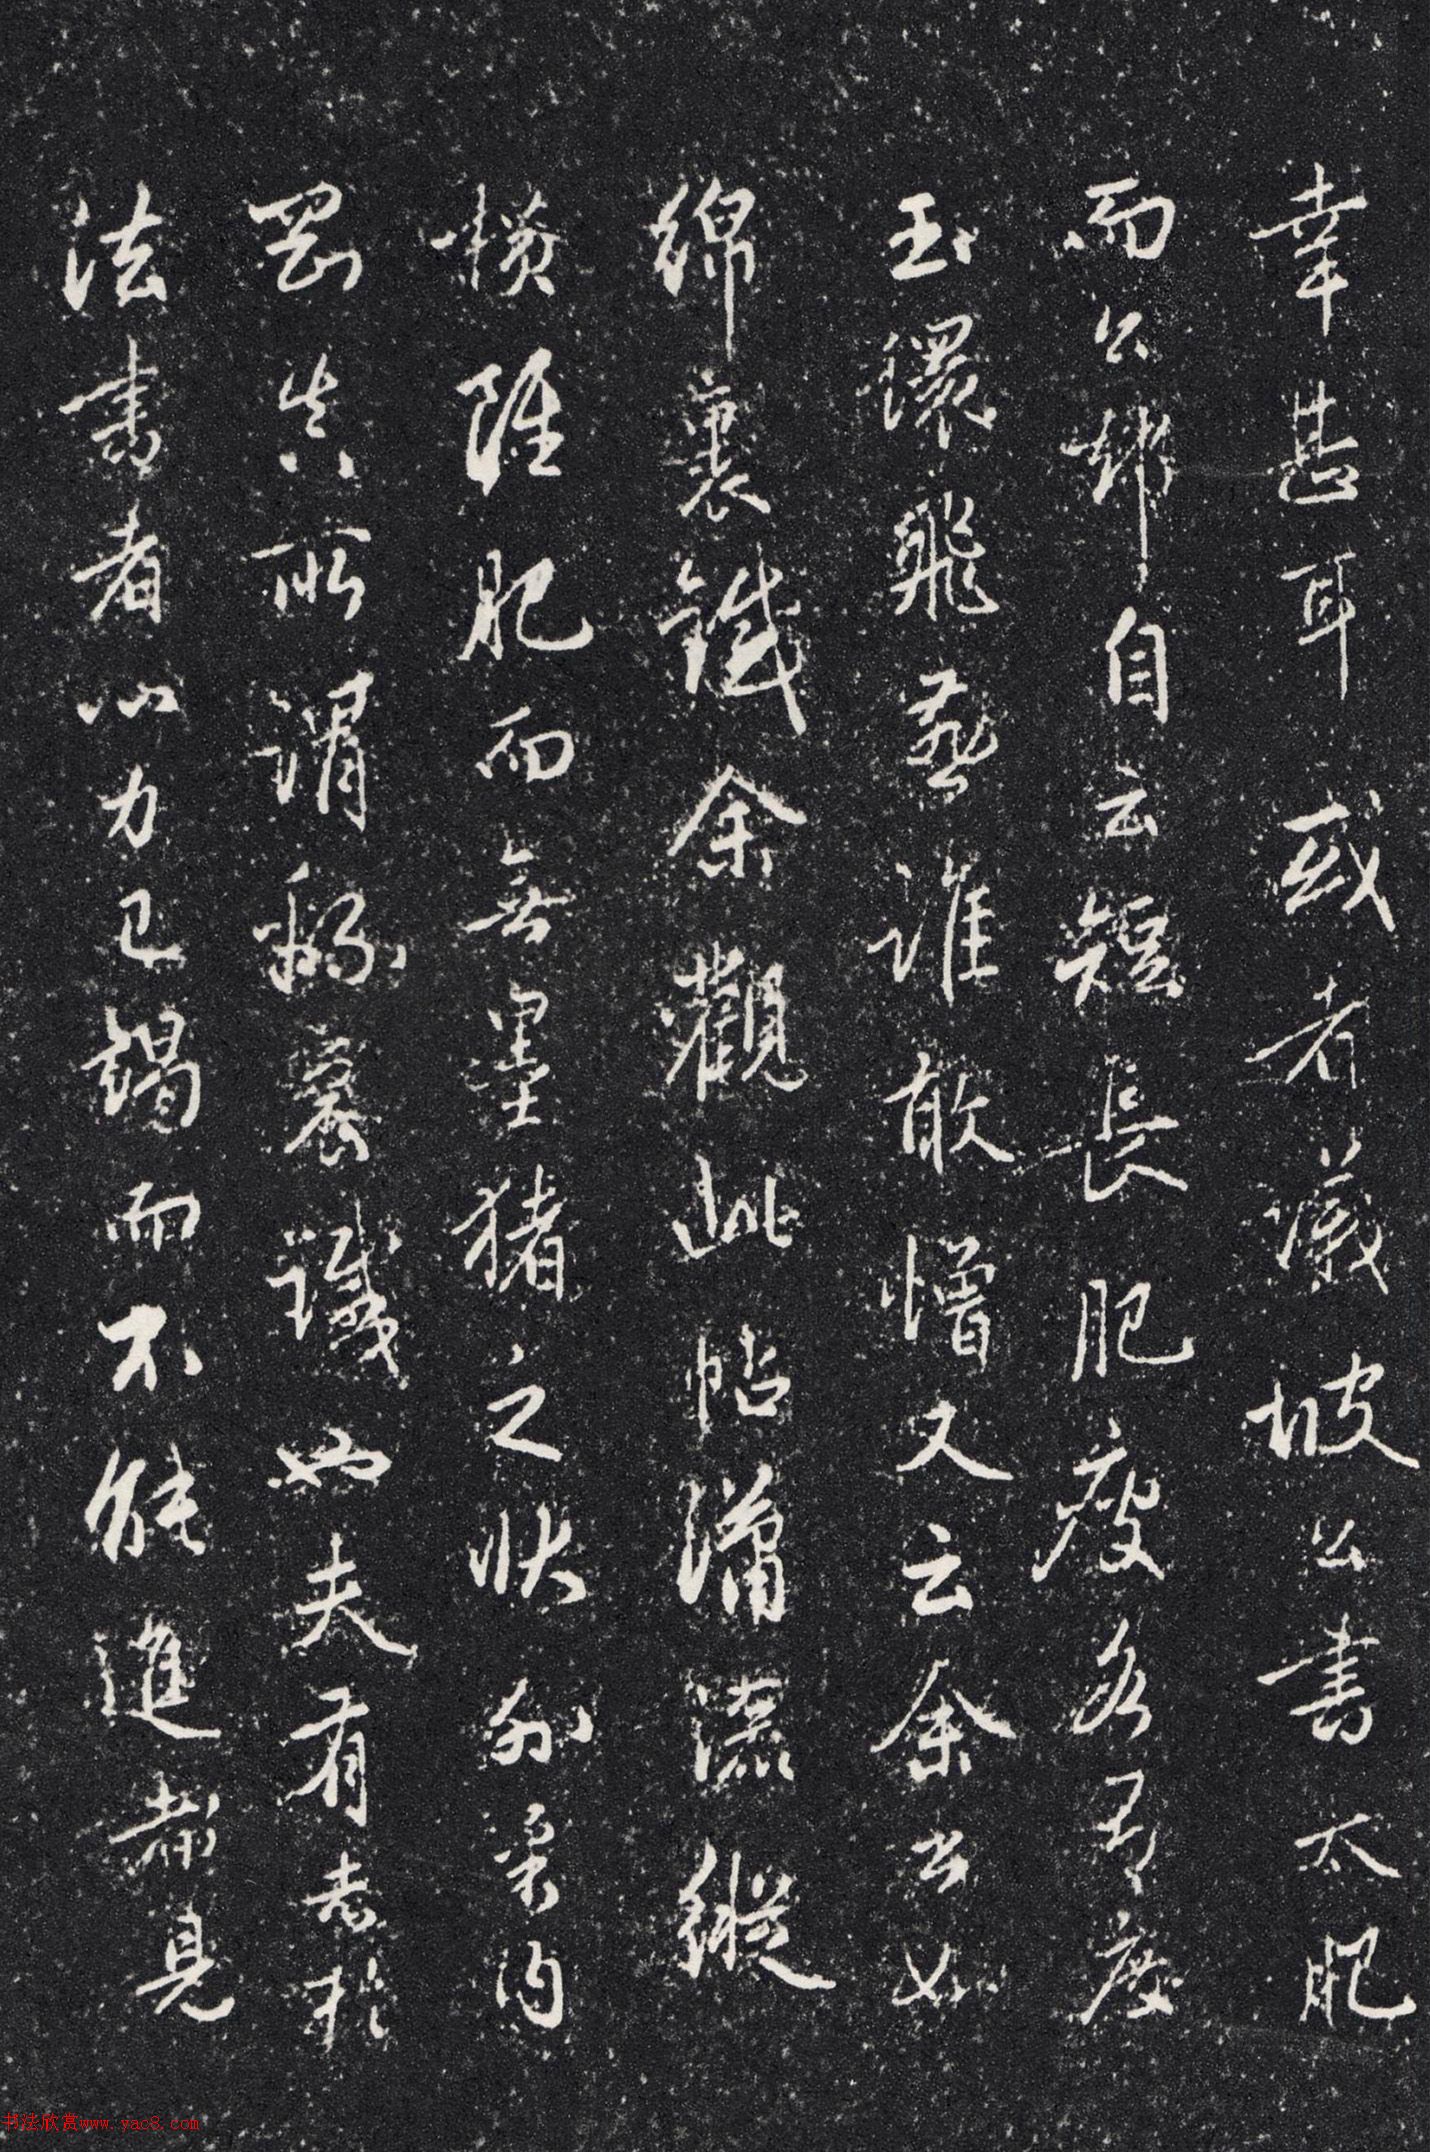 幸甚耳或者議坡公書太肥
而公却自云短長肥瘦各有度
玉環飛燕誰敢憎又云余書如
綿裹鐵余觀此帖瀟灑縱
橫雖肥而無墨猪之狀外柔内
剛真所謂綿裹鐵也夫有志於
法書者心力已竭而不能進見
书法欣赏www.yac8.com